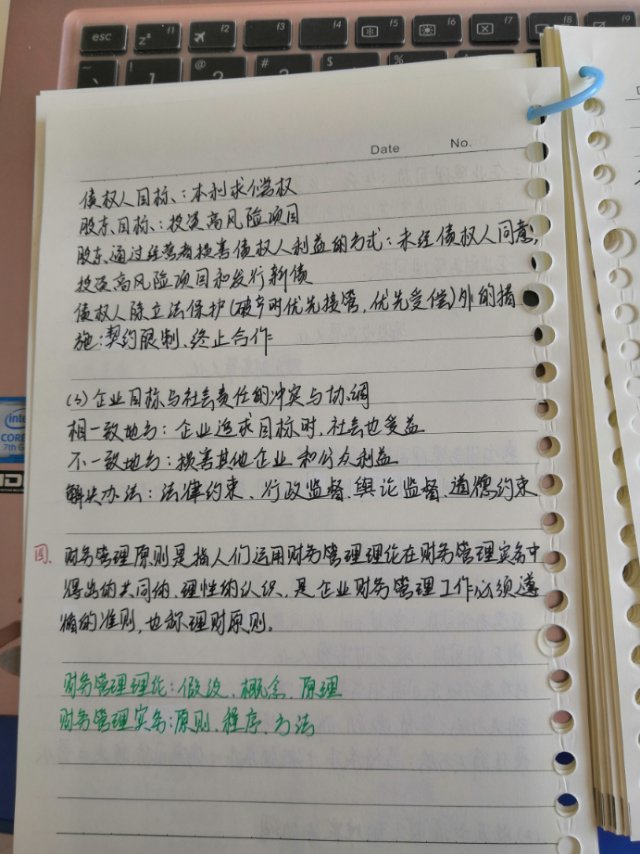 esc
Date No.
债权人目标:本利求偿权
股东目标:投资高风险项目
股东通过经营者损害债权人利益的方式:未经债权人同意,
投资高风险项目和发行新债
债权人除立法保护(破产时优先接管,优先受偿)外的措
施:契约限制、终止合作
(3)企业目标与社会责任的冲突与协调
相一致地方:企业追求目标时,社会也受益
不一致地方:损害其他企业和公众利益
解决办法:法律约束、行政监督、舆论监督、道德约束
四. 财务管理原则是指人们运用财务管理理论在财务管理实务中
得出的共同的、理性的认识,是企业财务管理工作必须遵
循的准则,也称理财原则。
财务管理理论:假设、概念、原理
财务管理实务:原则、程序、方法
intel
CORE
7th G